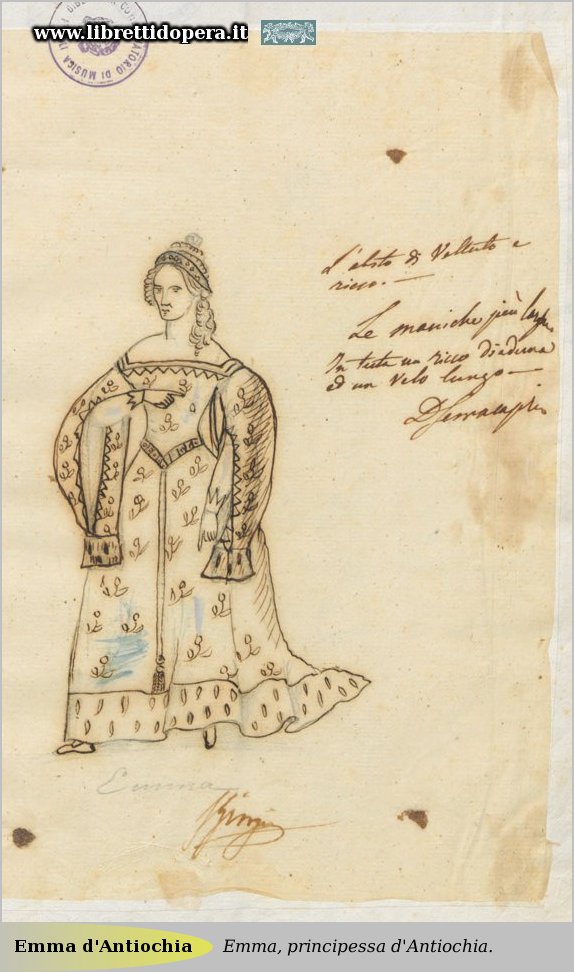 www.librettidopera.it
TORIO DI MUSICA
L'abito di Velluto e
ricco.—
Le maniche più
In testa un ricco diadema
ed un velo lungo—
Emma
Emma d'Antiochia Emma, principessa d'Antiochia.